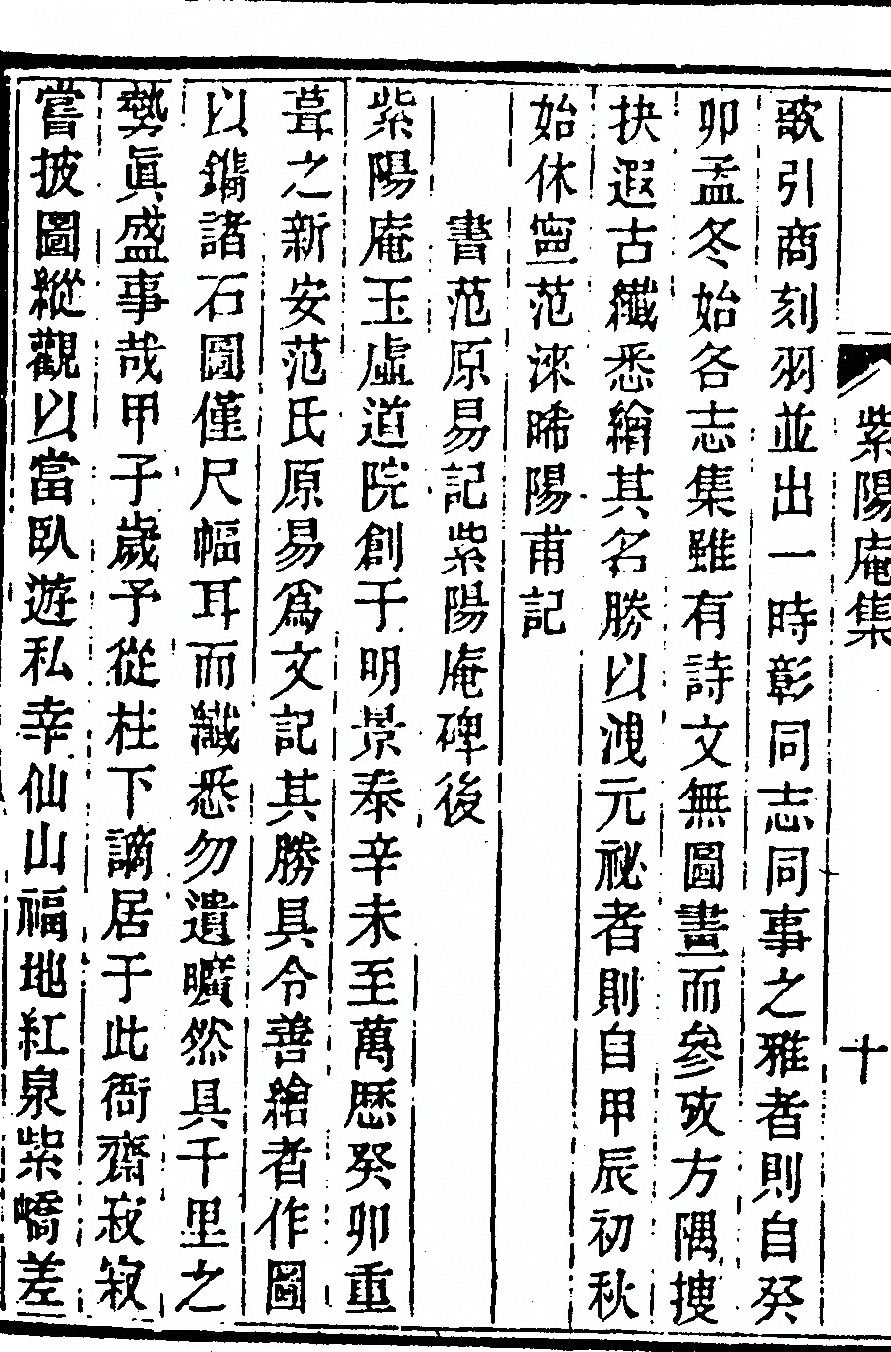 紫陽庵集
十
歌引商刻羽並出一時彰同志同事之雅者則自癸
卯孟冬始各志集雖有詩文無圖畫而參攷方隅搜
抉遐古纖悉繪其名勝以洩元祕者則自甲辰初秋
始休寧范淶晞陽甫記
書范原易記紫陽庵碑後
紫陽庵玉虛道院創于明景泰辛未至萬歷癸卯重
葺之新安范氏原易爲文記其勝具令善繪者作圖
以鐫諸石圖僅尺幅耳而纖悉勿遺曠然具千里之
勢眞盛事哉甲子歲予從柱下謫居于此衙齋寂寂
嘗披圖縱觀以當臥遊私幸仙山福地紅泉紫嶠差